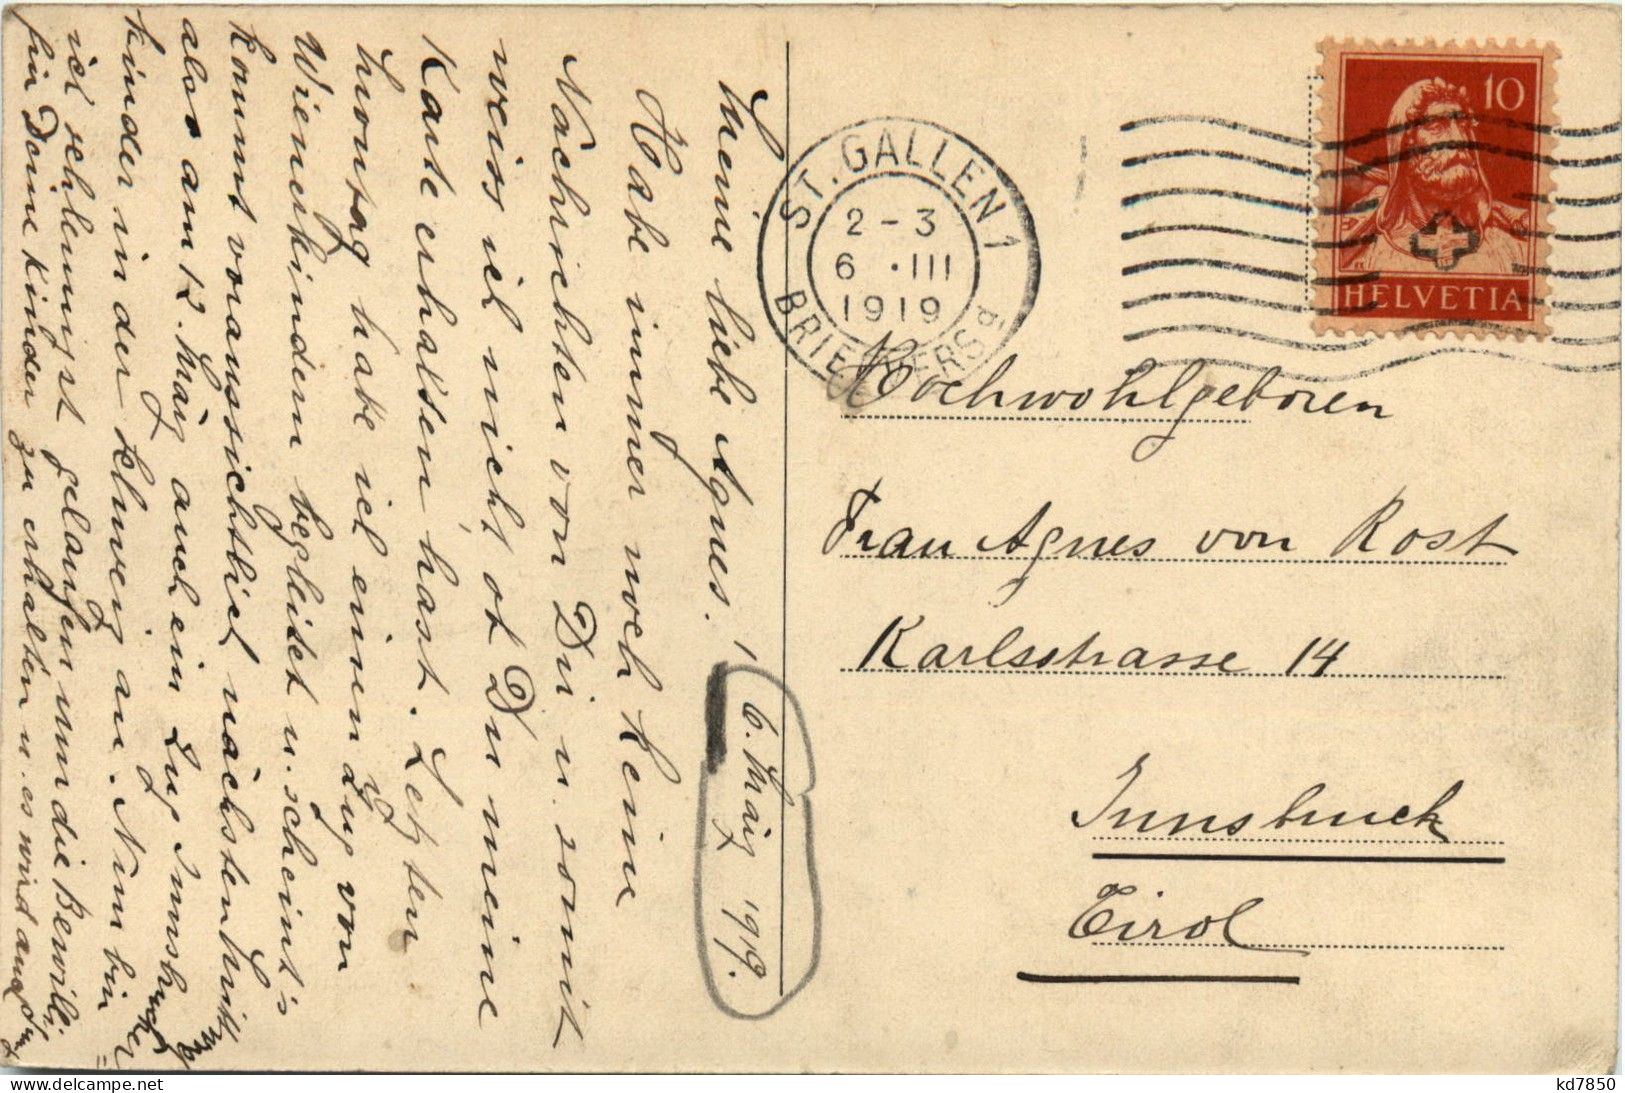 Meine liebe Agnes!
Habe immer noch keine
Nachrichten von Dir u. somit
weiss ich nicht ob Du meine
Karte erhalten hast. Letzten
Montag habe ich einen Zug von
Wienerkindern begleitet u. scheint's
kommt voraussichtlich nächsten Mittw.
also am 12. März auch ein Zug Innsbrucker
kinder in der Schweiz an. Nun bin
ich schleunigst gelaufen um die Bewilli-
für Deine Kinder zu erhalten u. es wird auch
6. März 1919.
ST. GALLEN 1
2-3
6 .III
1919
BRIEFVERSd.
10
HELVETIA
Hochwohlgeboren
Frau Agnes von Rost
Karlsstrasse 14
Innsbruck
Tirol
kd7850